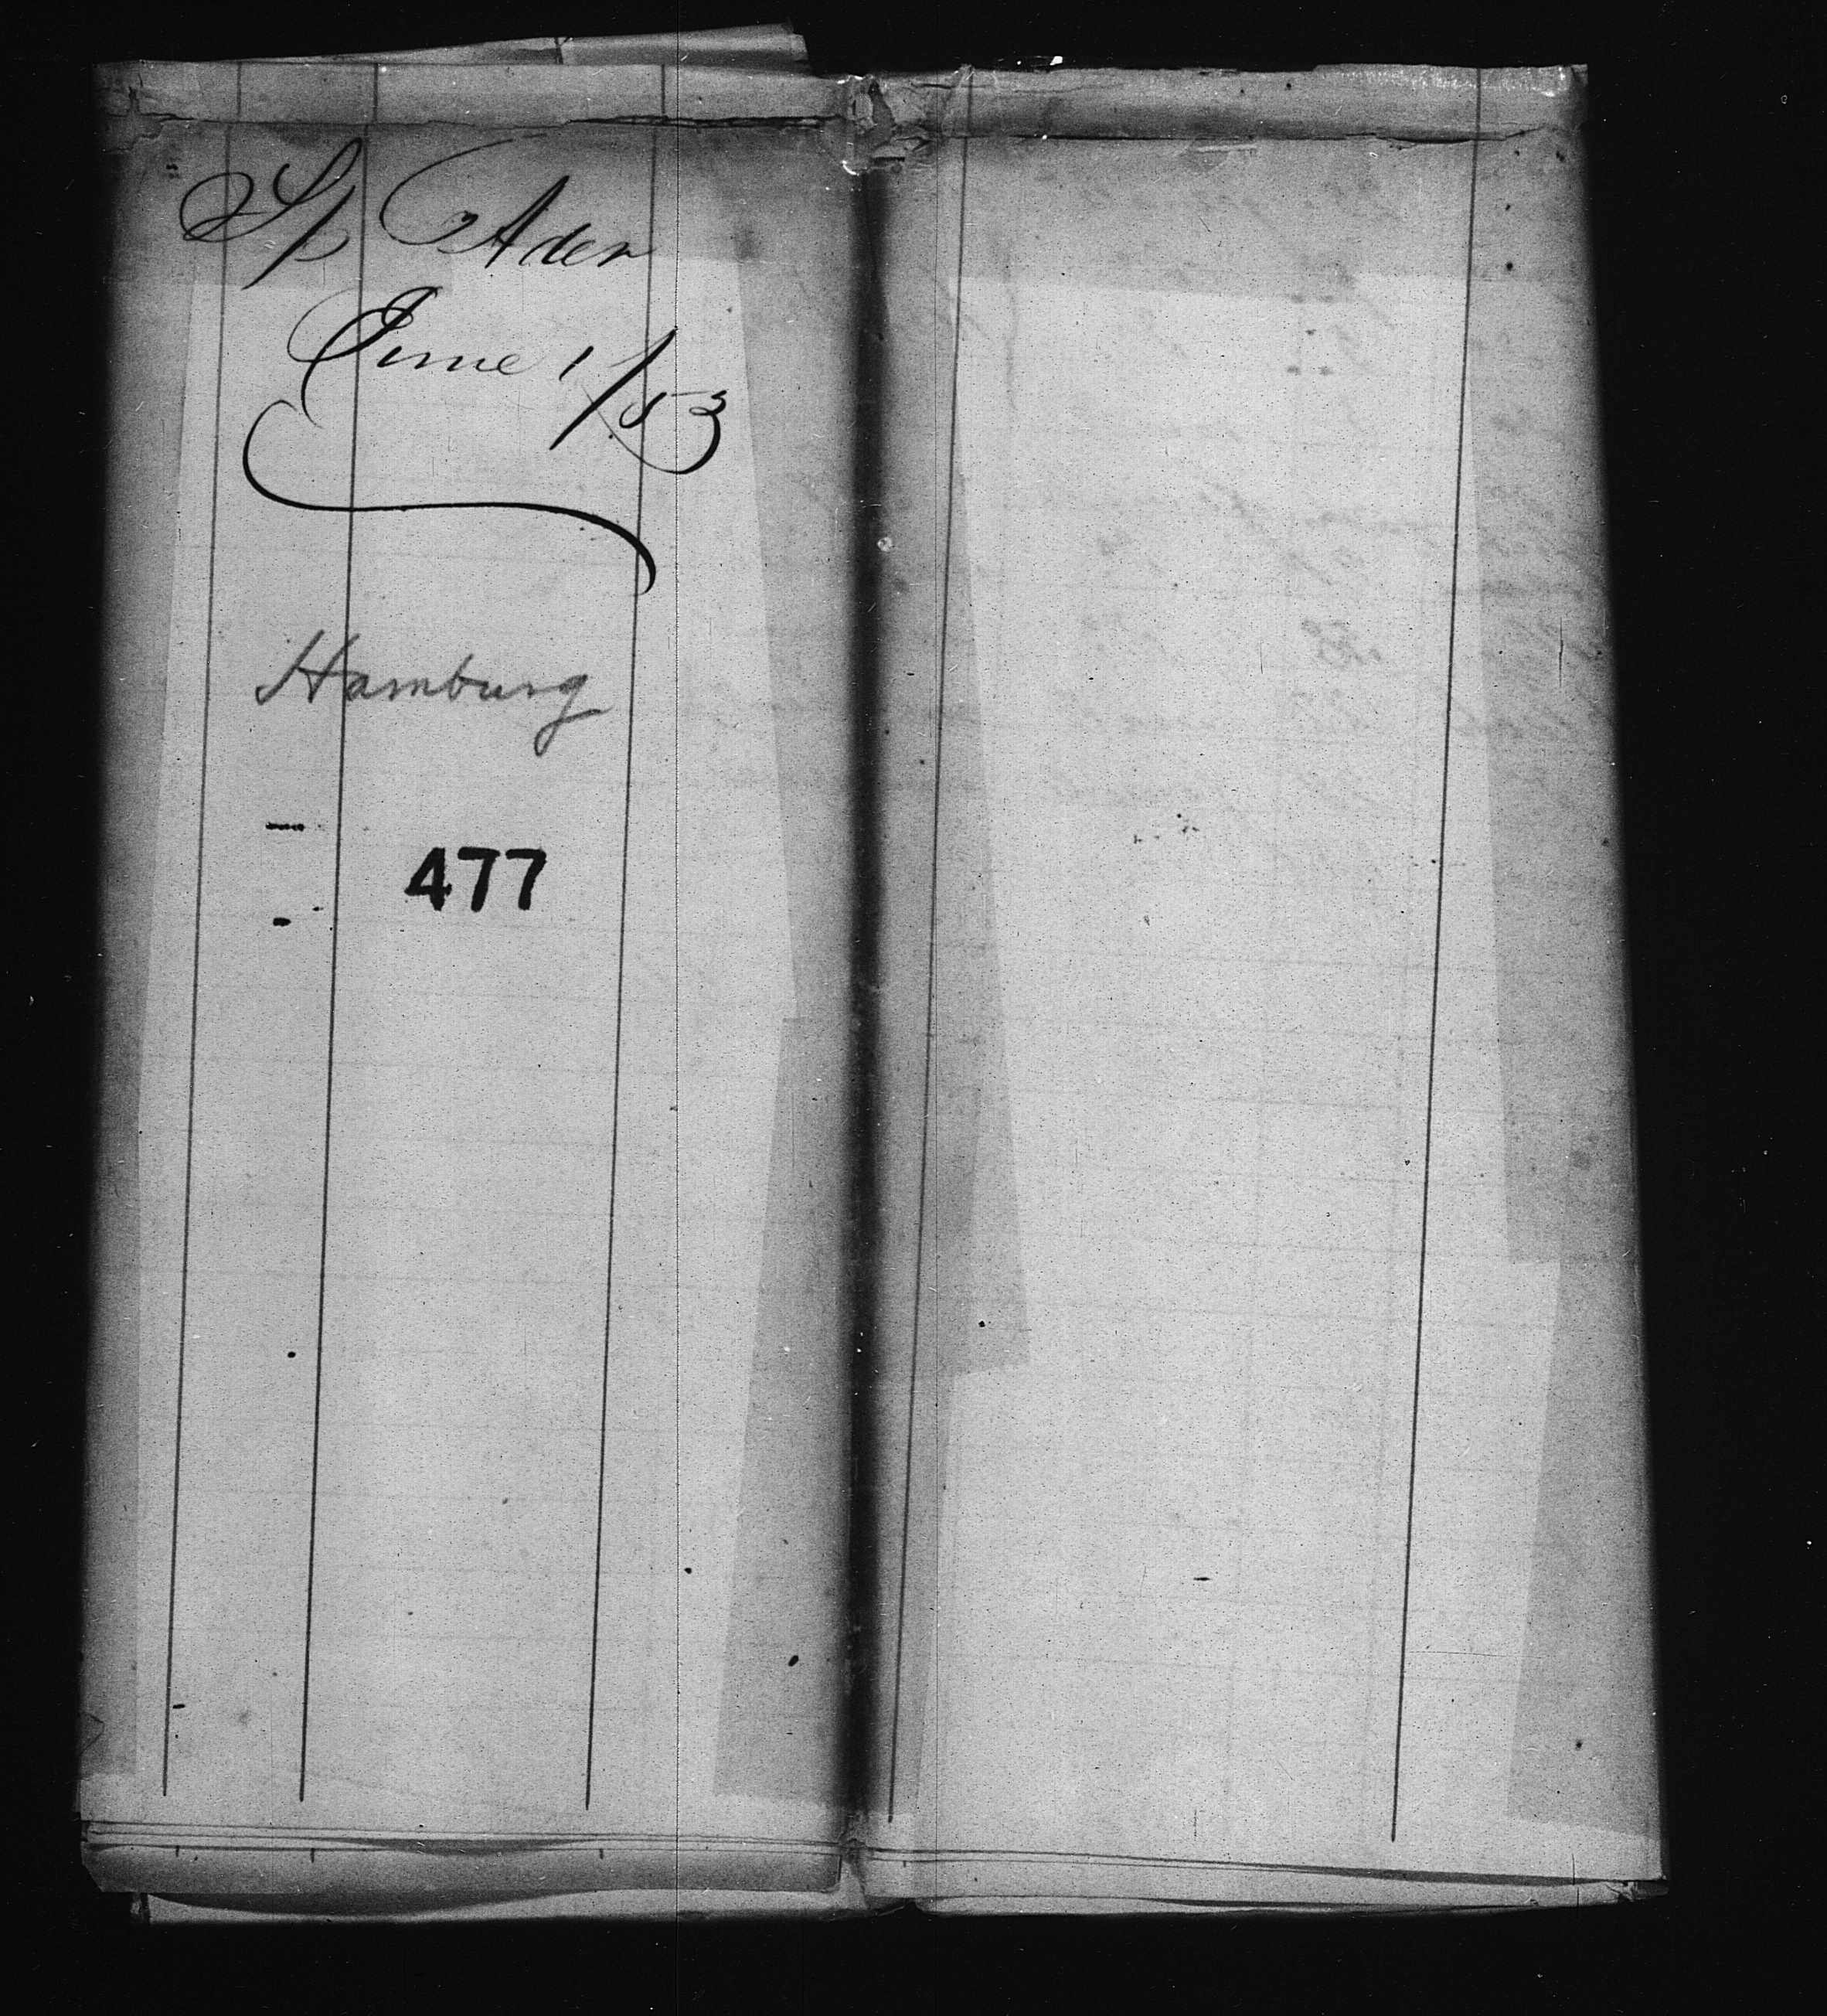 Sp Ader
June 1/53
Hamburg
477